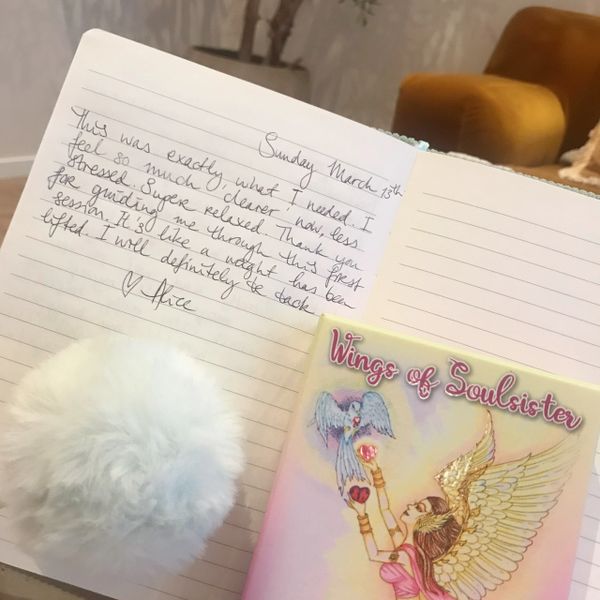 Sunday March 13th
This was exactly what I needed. I
feel so much clearer now, less
stressed. Super relaxed. Thank you
for guiding me through this first
session. It's like a weight has been
lifted. I will definitely be back
♡ Alice
Wings of Soulsister